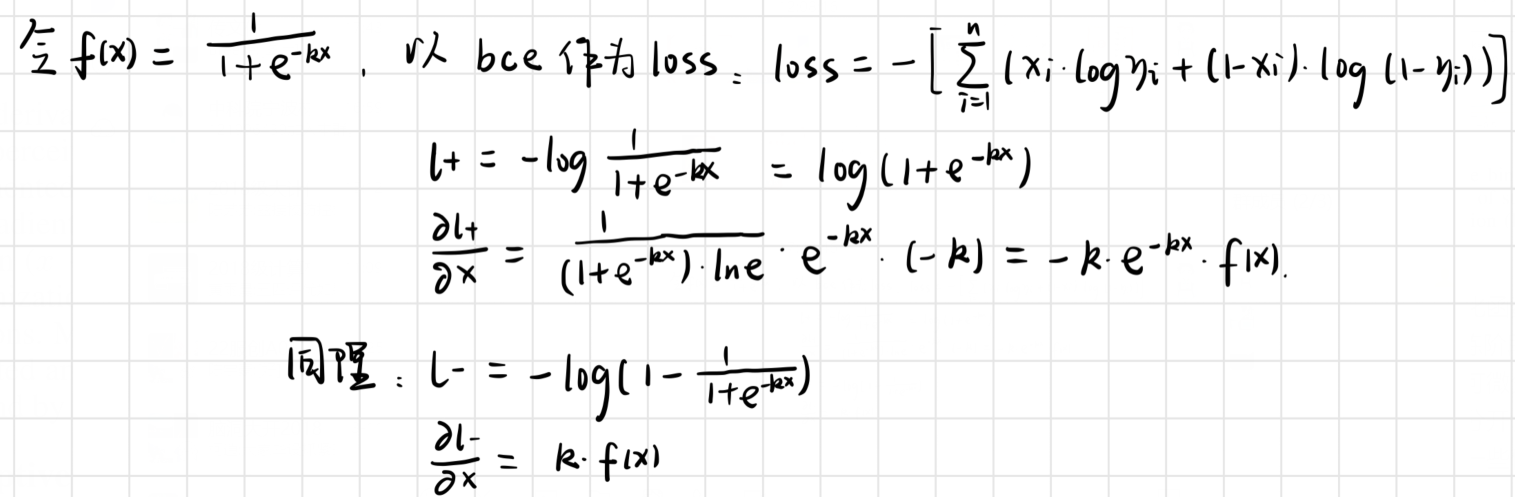 令 f(x) = 1/(1+e^{-kx}), 以 bce 作为 loss: loss = -[∑_{i=1}^{n} (x_i·log y_i + (1-x_i)·log (1-y_i))]
l+ = -log 1/(1+e^{-kx}) = log(1+e^{-kx})
∂l+/∂x = 1/((1+e^{-kx})·lne) · e^{-kx}·(-k) = -k·e^{-kx}·f(x).
同理: l- = -log(1 - 1/(1+e^{-kx}))
∂l-/∂x = k·f(x)